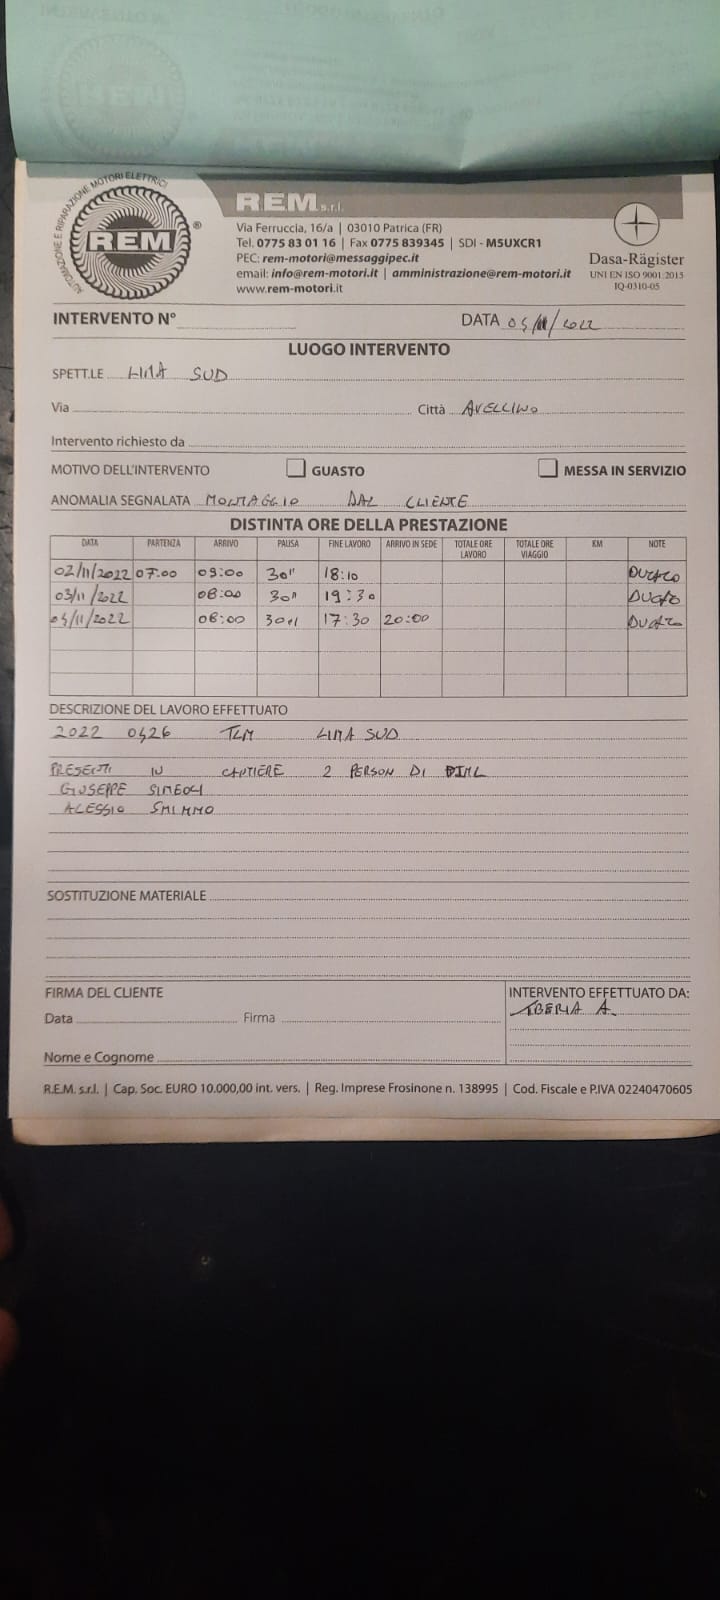 AUTOMAZIONE E RIPARAZIONE MOTORI ELETTRICI
REM
®
REM s.r.l.
Via Ferruccia, 16/a | 03010 Patrica (FR)
Tel. 0775 83 01 16 | Fax 0775 839345 | SDI - M5UXCR1
PEC: rem-motori@messaggipec.it
email: info@rem-motori.it | amministrazione@rem-motori.it
www.rem-motori.it
Dasa-Rägister
UNI EN ISO 9001:2015
IQ-0310-05
INTERVENTO N°
DATA 04/11/2022
LUOGO INTERVENTO
SPETT.LE LIMA SUD
Via Città AVELLINO
Intervento richiesto da
MOTIVO DELL'INTERVENTO GUASTO MESSA IN SERVIZIO
ANOMALIA SEGNALATA MONTAGGIO DAL CLIENTE
DISTINTA ORE DELLA PRESTAZIONE
DATA PARTENZA ARRIVO PAUSA FINE LAVORO ARRIVO IN SEDE TOTALE ORE LAVORO TOTALE ORE VIAGGIO KM NOTE
02/11/2022 07.00 09:00 30" 18:10 DUCATO
03/11/2022 08:00 30" 19:30 DUCATO
04/11/2022 08:00 30" 17:30 20:00 DUCATO
DESCRIZIONE DEL LAVORO EFFETTUATO
2022 0426 TLM LIMA SUD
PRESENTI IN CANTIERE 2 PERSON DI
GIUSEPPE SIMEOLI
ALESSIO
SOSTITUZIONE MATERIALE
FIRMA DEL CLIENTE
Data Firma
Nome e Cognome
INTERVENTO EFFETTUATO DA:
IBERIA A.
R.E.M. s.r.l. | Cap. Soc. EURO 10.000,00 int. vers. | Reg. Imprese Frosinone n. 138995 | Cod. Fiscale e P.IVA 02240470605